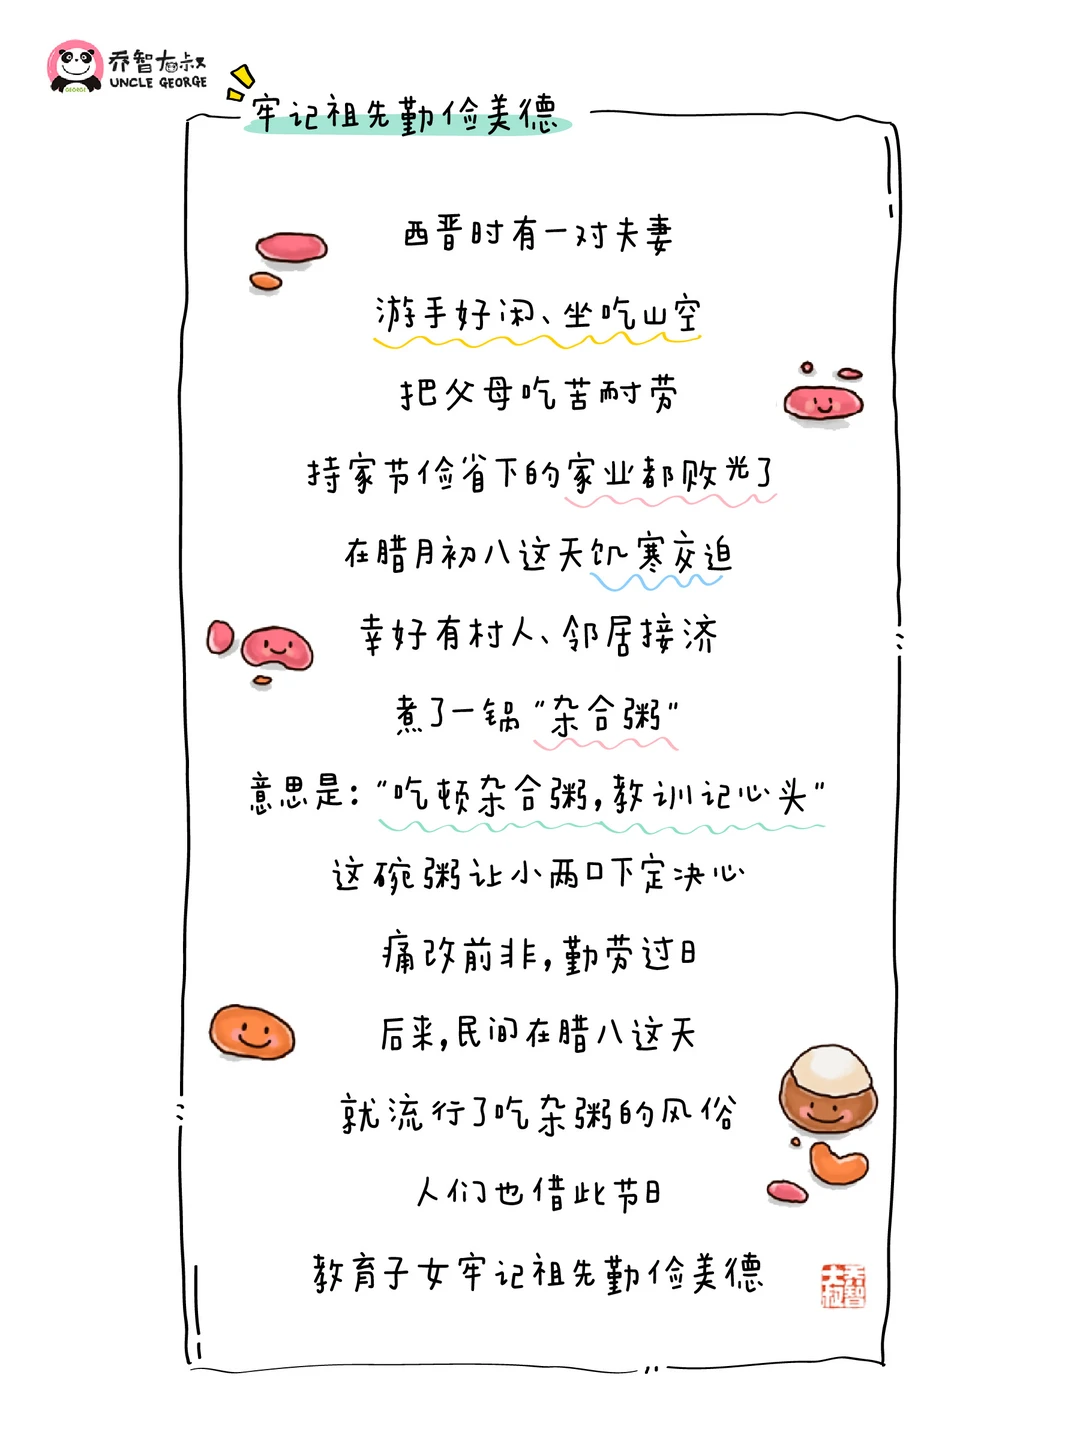 乔智大叔
UNCLE GEORGE
GEORGE
牢记祖先勤俭美德
西晋时有一对夫妻
游手好闲、坐吃山空
把父母吃苦耐劳
持家节俭省下的家业都败光了
在腊月初八这天饥寒交迫
幸好有村人、邻居接济
煮了一锅“杂合粥”
意思是：“吃顿杂合粥，教训记心头”
这碗粥让小两口下定决心
痛改前非，勤劳过日
后来，民间在腊八这天
就流行了吃杂粥的风俗
人们也借此节日
教育子女牢记祖先勤俭美德
乔智大叔